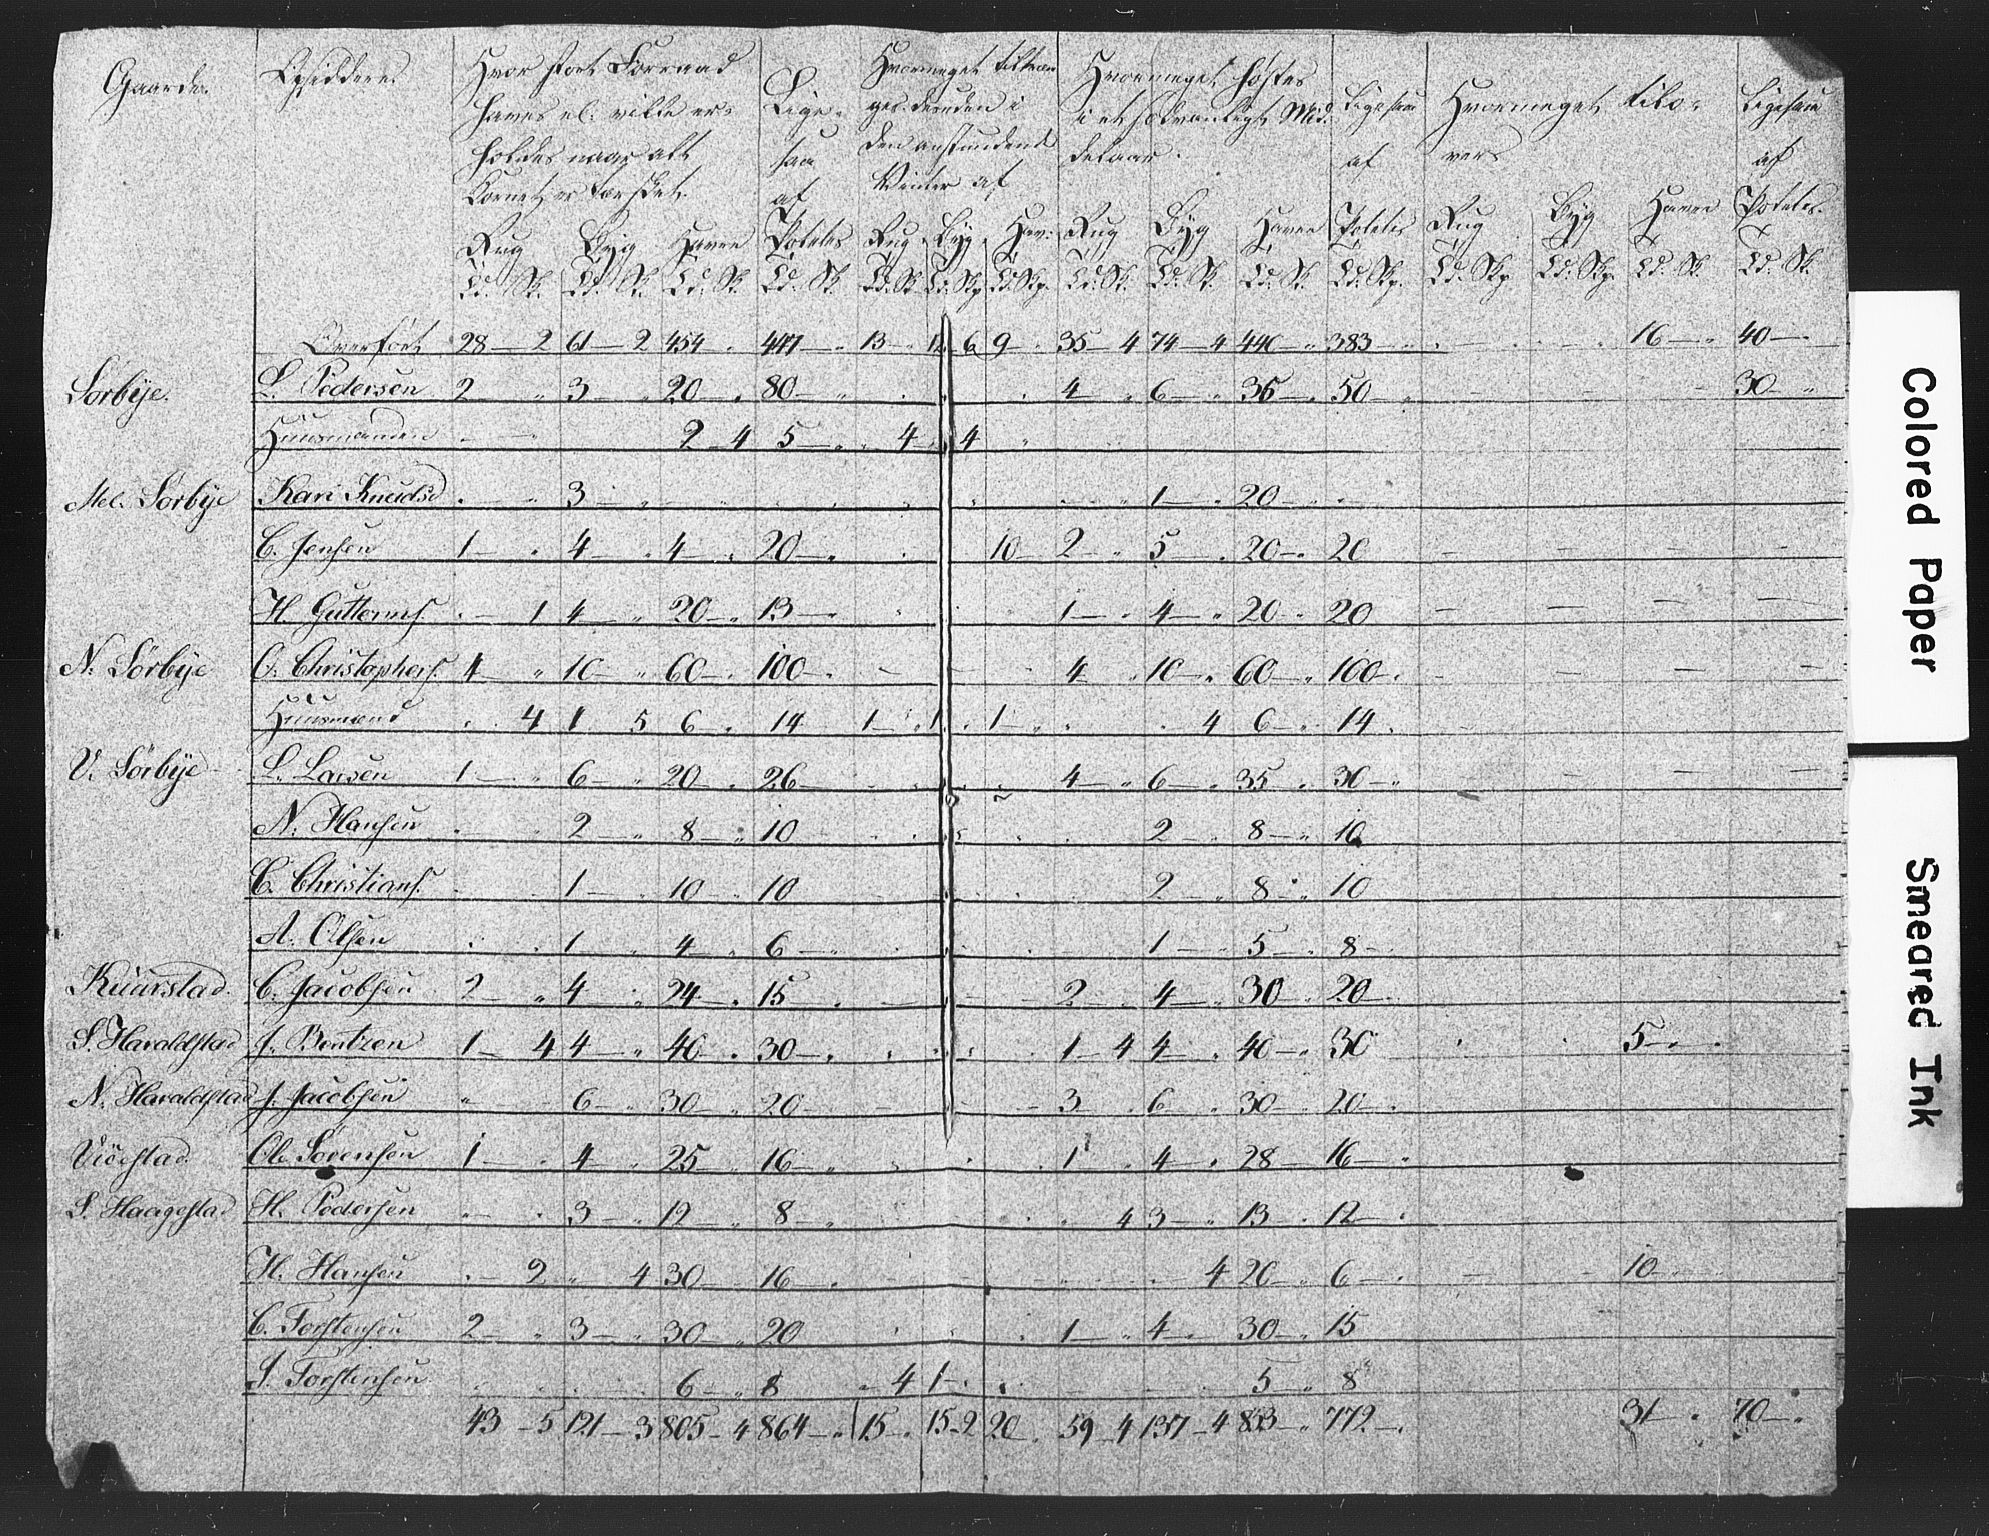 Gaarde. Opsiddere Hvor stort Forraad haves el. ville erholdes naar alt Kornet er tærsket. Ligesaa af Hvormeget tiltrænges desuden i den anstundende Vinter af Hvormeget høstes i et sædvanligt Middelaar. Ligesaa af Hvormeget tilovers Ligesaa af
Rug Byg Havre Poteter Rug Byg Hav: Rug Byg Havre Poteter Rug Byg Havre Poteter.
Td. Sk. Td. Sk. Td. Sk. Td. Sk. Td. Sk. Td. Skp. Td. Skp. Td. Sk. Td. Sk. Td. Sk. Td. Skp. Td. Skp. Td. Skp. Td. Sk. Td. Sk.
Overført 28 — 2 61 — 2 454 — „ 447 — „ 13 — „ 12 — 6 9 — „ 35 — 4 74 — 4 440 — „ 383 16 — „ 40 — „
Sorbÿe. L. Pedersen 2 — „ 3 — „ 20 — „ 80 — „ 4 — „ 6 — „ 36 — „ 50 — „ 30 — „
Huusmanden 2 — 4 5 — „ „ 4 „ 4 „
Mel. Sorbÿe Kari Knudsd 3 1 — „ 20 — „
C. Jensen 1 — „ 4 — „ 4 — „ 20 — „ 10 2 — „ 5 — „ 20 — „ 20
H. Gutterms. 1 4 — „ 20 — „ 13 — „ 1 — „ 4 — „ 20 — „ 20
N. Sörbÿe O. Christophers. 4 — „ 10 — „ 60 — „ 100 — „ 4 — „ 10 — „ 60 — „ 100 — „
Huusmænd „ 4 1 5 6 — „ 14 1 — „ 1 „ 1 — „ 4 6 — „ 14
V. Sörbÿe L. Larsen 1 — „ 6 — „ 20 — „ 26 — „ 4 — „ 6 — „ 35 — „ 30 — „
N. Hansen 2 — „ 8 — „ 10 2 — „ 8 — „ 10
C. Christians. 1 — „ 10 — „ 10 2 — „ 8 — „ 10
A. Olsen 1 — „ 4 — „ 6 — „ 1 — „ 5 — „ 8 —
Knurstad. C. Jacobsen 2 — „ 4 — „ 24 — „ 15 — „ 2 — „ 4 — „ 30 — „ 20 —
S. Haraldstad J. Bentzen 1 — 4 4 — „ 40 — „ 30 — „ 1 — 4 4 — „ 40 — „ 30 5 — „
N. Haraldstad J. Jacobsen „ 6 — „ 30 — „ 20 — 3 — „ 6 — „ 30 — „ 20 — „
Ole Sörensen 1 — „ 4 — „ 25 — „ 16 — „ 1 — „ 4 — „ 28 — „ 16 — „
S. Haagestad H. Pedersen 3 — „ 12 — „ 8 — „ „ 4 3 — „ 13 — „ 12 — „
H. Hansen „ — 2 „ 4 30 — „ 16 — „ 4 20 — „ 6 — „ 10 —
C. Torstensen 2 — „ 3 — „ 30 — „ 20 1 — „ 4 — „ 30 — „ 15
S. Torstensen 6 — „ 8 „ 4 1 — „ 5 — „ 8
43 — 5 121 — 3 805 — 4 864 — „ 15 — „ 15 — 2 20 — „ 59 — 4 137 — 4 853 — „ 772 — „ 31 — „ 70 — „
Colored Paper
Smeared Ink